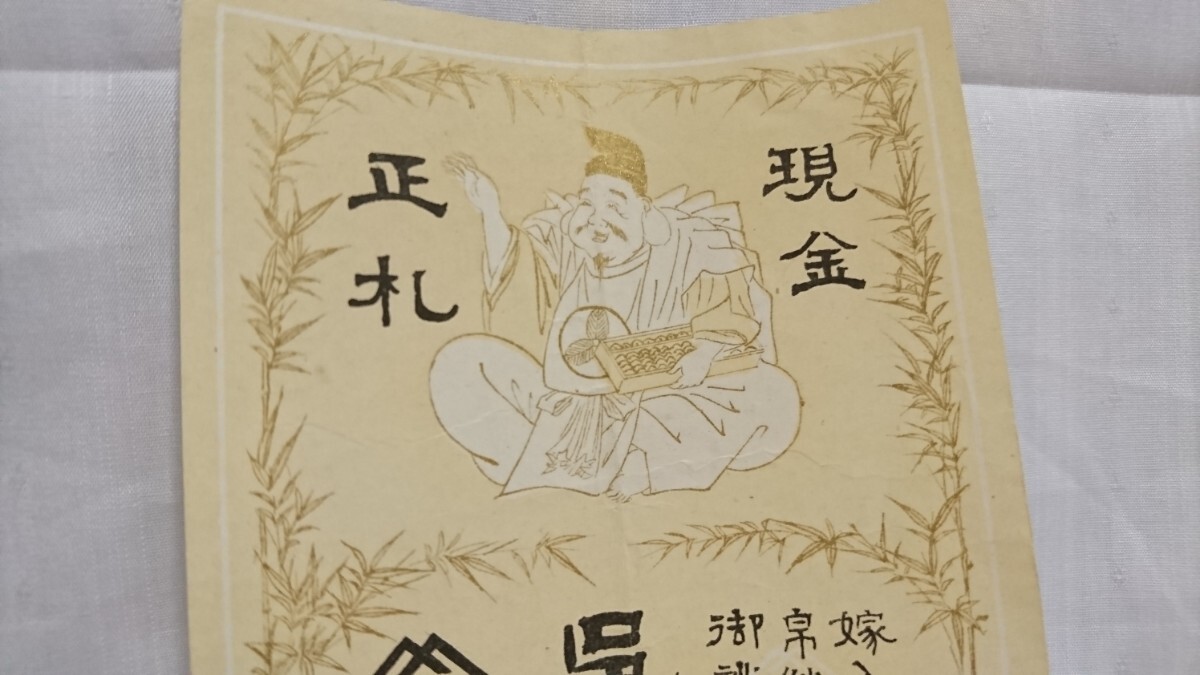 現金
正札
嫁入
帛
御
呉